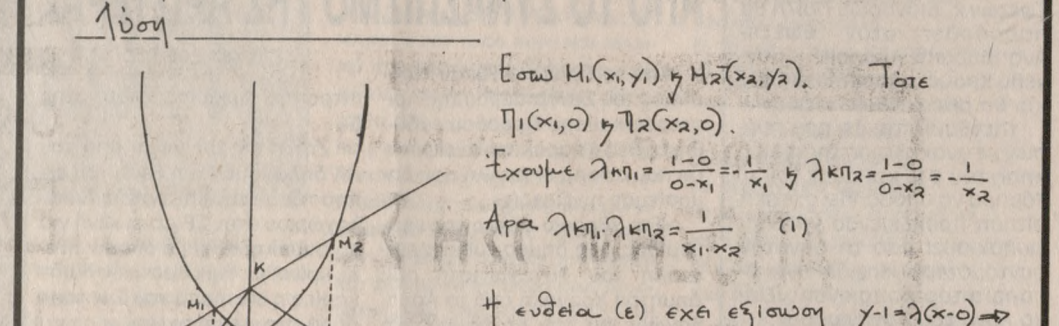 Λύση
Εστω Μ₁(x₁,y₁) ϗ Μ₂(x₂,y₂). Τότε
Π₁(x₁,0) ϗ Π₂(x₂,0).
Έχουμε λκπ₁=(1-0)/(0-x₁)=-1/x₁ ϗ λκπ₂=(1-0)/(0-x₂)=-1/x₂
Αρα λκπ₁.λκπ₂=1/(x₁.x₂) (1)
Μ₂
Κ
Μ₁
Η ευθεία (ε) εχει εξίσωση y-1=λ(x-0)⇒